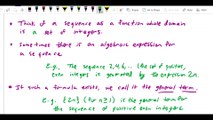 • Think of a sequence as a function whose domain
is a set of integers.
• Sometimes there is an algebraic expression for
a sequence
E.g., The sequence 2, 4, 6 ... (the set of positive,
even integers is generated by the expression 2n.
• If such a formula exists, we call it the general term.
E.g. {2n} (for n≥1) is the general term for
the sequence of positive even integers